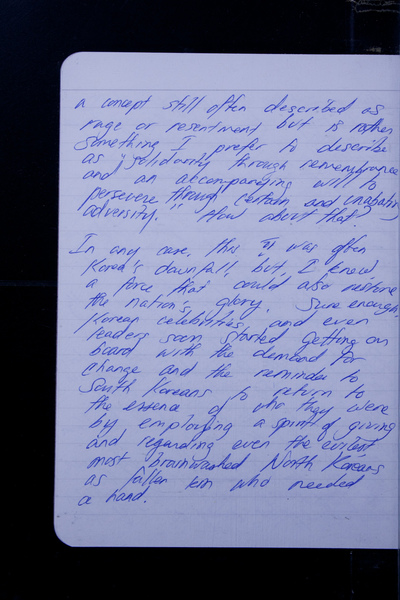 a concept still often described as
rage or resentment but is rather
something I prefer to describe
as "solidarity through remembrance
and an accompanying will to
persevere through certain and unabating
adversity." How about that?
In any case, this "it" was often
Korea's downfall, but, I knew,
a force that could also restore
the nation's glory. Sure enough,
Korean celebrities, and even
leaders soon started getting on
board with the demand for
change and the reminder to
South Koreans to return to
the essence of who they were
by employing a spirit of giving
and regarding even the evilest,
most brainwashed North Koreans
as fallen kin who needed
a hand.